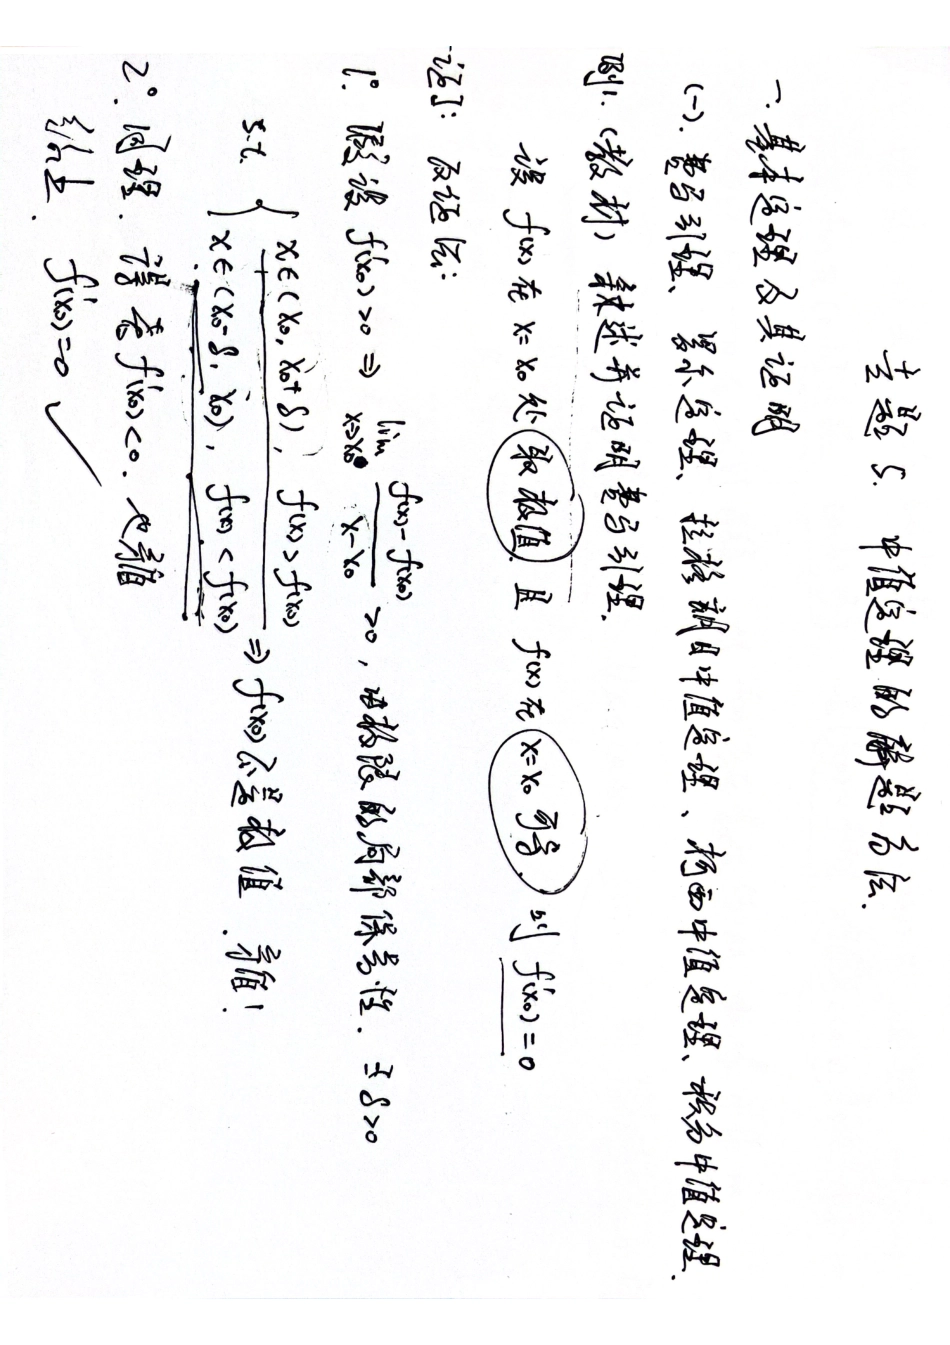 专题5. 中值定理的解题方法.
一. 基本定理及其证明
(一). 费马引理、罗尔定理、拉格朗日中值定理、柯西中值定理、积分中值定理.
例1. (教材) 叙述并证明费马引理.
设 f(x) 在 x=x₀ 处取极值. 且 f(x) 在 x=x₀ 可导. 则 f'(x₀)=0
证: 反证法:
1°. 假设 f'(x₀)>0 ⇒ lim_{x→x₀} (f(x)-f(x₀))/(x-x₀) >0, 由极限的局部保号性. ∃ δ>0
s.t. { x∈(x₀, x₀+δ), f(x)>f(x₀)
x∈(x₀-δ, x₀), f(x)<f(x₀) ⇒ f(x₀) 不是极值. 矛盾!
2°. 同理. 设若 f'(x₀)<0. 也矛盾
综上. f'(x₀)=0 ✓